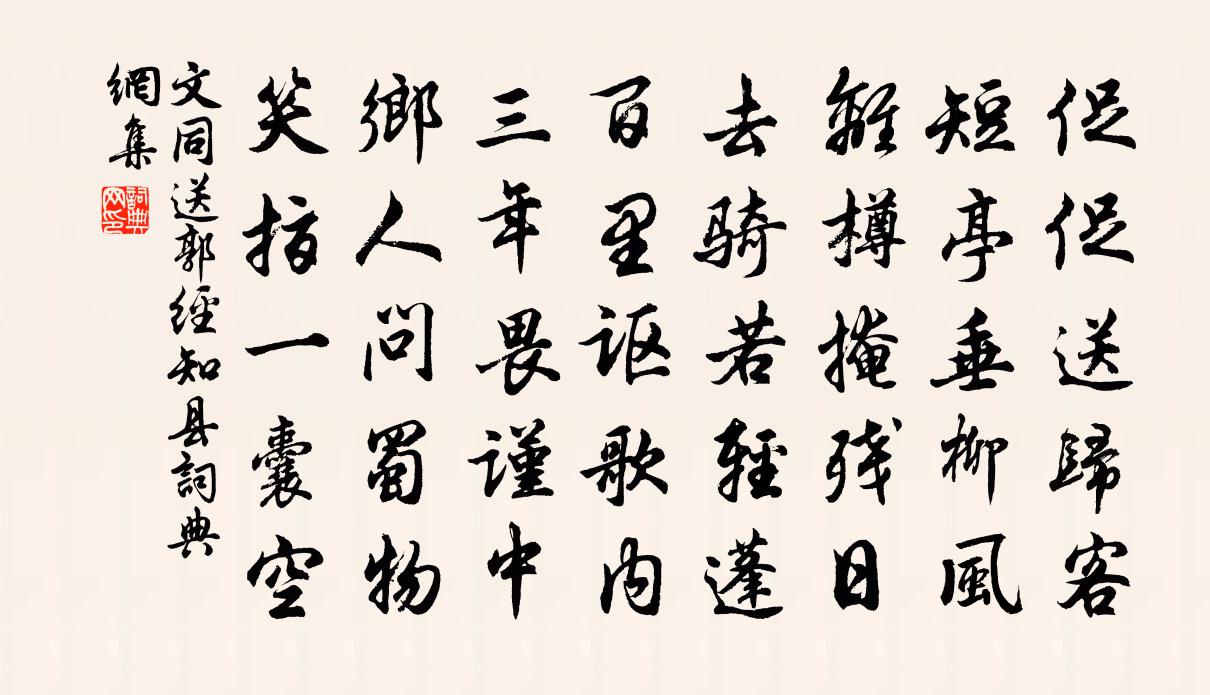 促促送歸客
短亭垂柳風
離樽掩殘日
去騎若輕蓬
百里謳歌內
三年畏謹中
鄉人問蜀物
笑指一囊空
文同送郭經知县詞典
網集
詞典網印